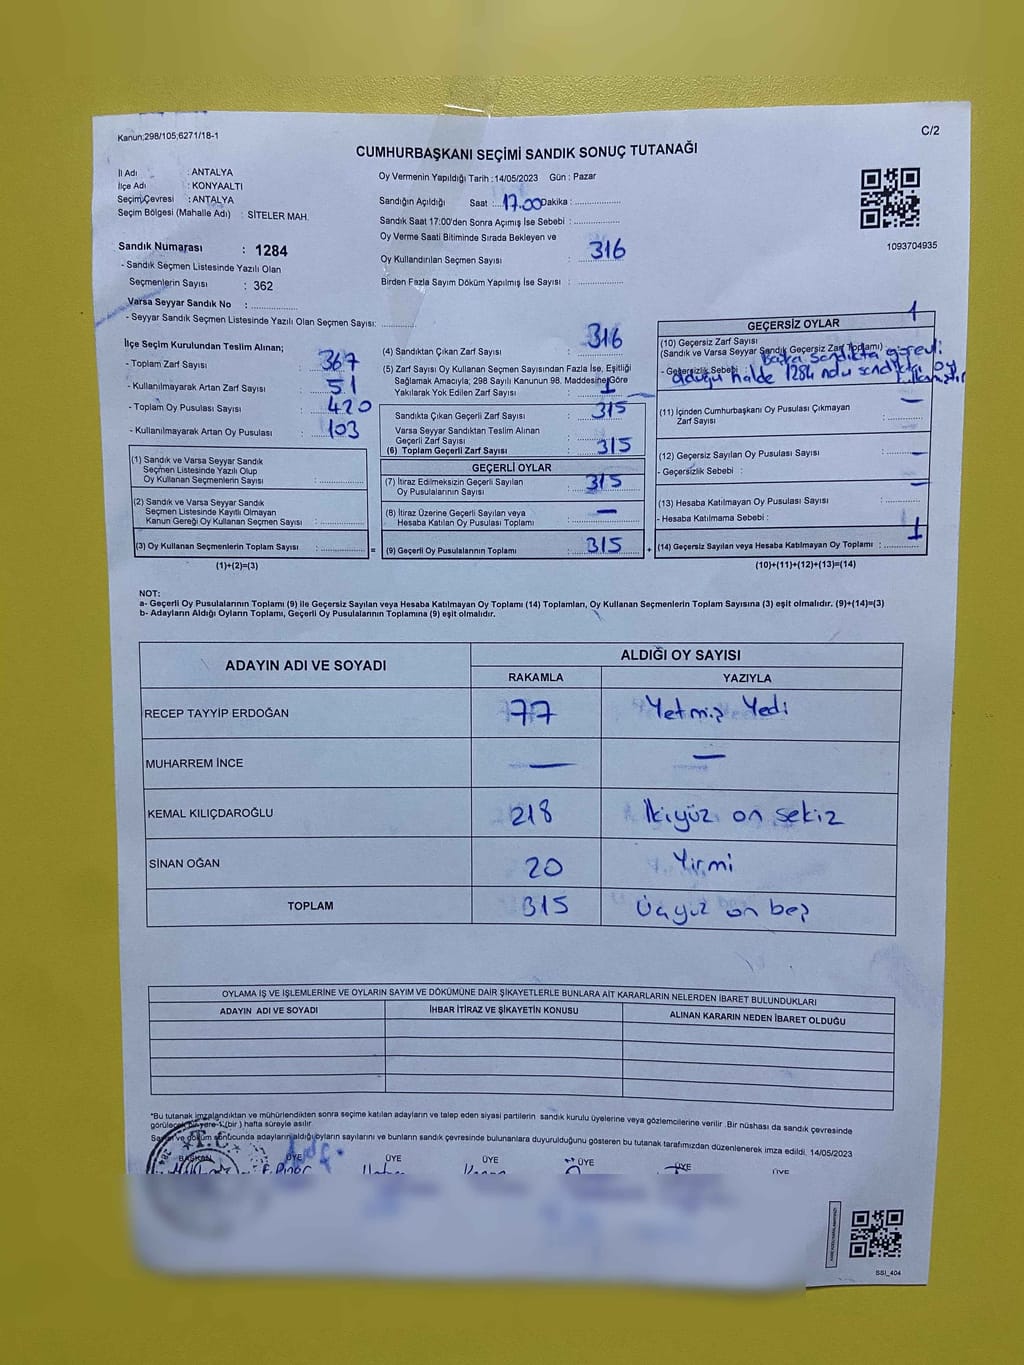 Kanun;298/105,6271/18-1
C/2
CUMHURBAŞKANI SEÇİMİ SANDIK SONUÇ TUTANAĞI
İl Adı : ANTALYA
İlçe Adı : KONYAALTI
Seçim Çevresi : ANTALYA
Seçim Bölgesi (Mahalle Adı) : SİTELER MAH.
Oy Vermenin Yapıldığı Tarih : 14/05/2023 Gün : Pazar
Sandığın Açıldığı Saat : 17.00 Dakika :
Sandık Saat 17:00'den Sonra Açımış İse Sebebi :
Oy Verme Saati Bitiminde Sırada Bekleyen ve
Oy Kullandırılan Seçmen Sayısı : 316
Birden Fazla Sayım Döküm Yapılmış İse Sayısı :
1093704935
Sandık Numarası : 1284
- Sandık Seçmen Listesinde Yazılı Olan
Seçmenlerin Sayısı : 362
Varsa Seyyar Sandık No :
- Seyyar Sandık Seçmen Listesinde Yazılı Olan Seçmen Sayısı:
İlçe Seçim Kurulundan Teslim Alınan;
- Toplam Zarf Sayısı : 367
- Kullanılmayarak Artan Zarf Sayısı : 51
- Toplam Oy Pusulası Sayısı : 420
- Kullanılmayarak Artan Oy Pusulası : 103
(1) Sandık ve Varsa Seyyar Sandık
Seçmen Listesinde Yazılı Olup
Oy Kullanan Seçmenlerin Sayısı :
(2) Sandık ve Varsa Seyyar Sandık
Seçmen Listesinde Kayıtlı Olmayan
Kanun Gereği Oy Kullanan Seçmen Sayısı :
(3) Oy Kullanan Seçmenlerin Toplam Sayısı : =
(1)+(2)=(3)
(4) Sandıktan Çıkan Zarf Sayısı : 316
(5) Zarf Sayısı Oy Kullanan Seçmen Sayısından Fazla İse, Eşitliği
Sağlamak Amacıyla; 298 Sayılı Kanunun 98. Maddesine Göre
Yakılarak Yok Edilen Zarf Sayısı : 1
Sandıkta Çıkan Geçerli Zarf Sayısı : 315
Varsa Seyyar Sandıktan Teslim Alınan
Geçerli Zarf Sayısı :
(6) Toplam Geçerli Zarf Sayısı : 315
GEÇERLİ OYLAR
(7) İtiraz Edilmeksizin Geçerli Sayılan
Oy Pusulalarının Sayısı : 315
(8) İtiraz Üzerine Geçerli Sayılan veya
Hesaba Katılan Oy Pusulası Toplamı : —
(9) Geçerli Oy Pusulalarının Toplamı : 315 +
1
GEÇERSİZ OYLAR
(10) Geçersiz Zarf Sayısı
(Sandık ve Varsa Seyyar Sandık Geçersiz Zarf Toplamı)
Başka sandıkta görevli
- Geçersizlik Sebebi :
olduğu halde 1284 nolu sandıkta oy
kullanmıştır
(11) İçinden Cumhurbaşkanı Oy Pusulası Çıkmayan
Zarf Sayısı : —
(12) Geçersiz Sayılan Oy Pusulası Sayısı : —
- Geçersizlik Sebebi :
(13) Hesaba Katılmayan Oy Pusulası Sayısı : —
- Hesaba Katılmama Sebebi :
(14) Geçersiz Sayılan veya Hesaba Katılmayan Oy Toplamı : 1
(10)+(11)+(12)+(13)=(14)
NOT:
a- Geçerli Oy Pusulalarının Toplamı (9) ile Geçersiz Sayılan veya Hesaba Katılmayan Oy Toplamı (14) Toplamları, Oy Kullanan Seçmenlerin Toplam Sayısına (3) eşit olmalıdır. (9)+(14)=(3)
b- Adayların Aldığı Oyların Toplamı, Geçerli Oy Pusulalarının Toplamına (9) eşit olmalıdır.
ADAYIN ADI VE SOYADI ALDIĞI OY SAYISI
RAKAMLA YAZIYLA
RECEP TAYYİP ERDOĞAN 77 Yetmiş Yedi
MUHARREM İNCE — —
KEMAL KILIÇDAROĞLU 218 İkiyüz on sekiz
SİNAN OĞAN 20 Yirmi
TOPLAM 315 Üçyüz on beş
OYLAMA İŞ VE İŞLEMLERİNE VE OYLARIN SAYIM VE DÖKÜMÜNE DAİR ŞİKAYETLERLE BUNLARA AİT KARARLARIN NELERDEN İBARET BULUNDUKLARI
ADAYIN ADI VE SOYADI İHBAR İTİRAZ VE ŞİKAYETİN KONUSU ALINAN KARARIN NEDEN İBARET OLDUĞU
*Bu tutanak imzalandıktan ve mühürlendikten sonra seçime katılan adayların ve talep eden siyasi partilerin sandık kurulu üyelerine veya gözlemcilerine verilir. Bir nüshası da sandık çevresinde
görülecek bir yere 1 (bir) hafta süreyle asılır.
Sayım ve döküm sonucunda adayların aldığı oyların sayılarını ve bunların sandık çevresinde bulunanlara duyurulduğunu gösteren bu tutanak tarafımızdan düzenlenerek imza edildi. 14/05/2023
T.C.
BAŞKAN ÜYE ÜYE ÜYE ** ÜYE ÜYE ÜYE
F. Pınar
SSI_404